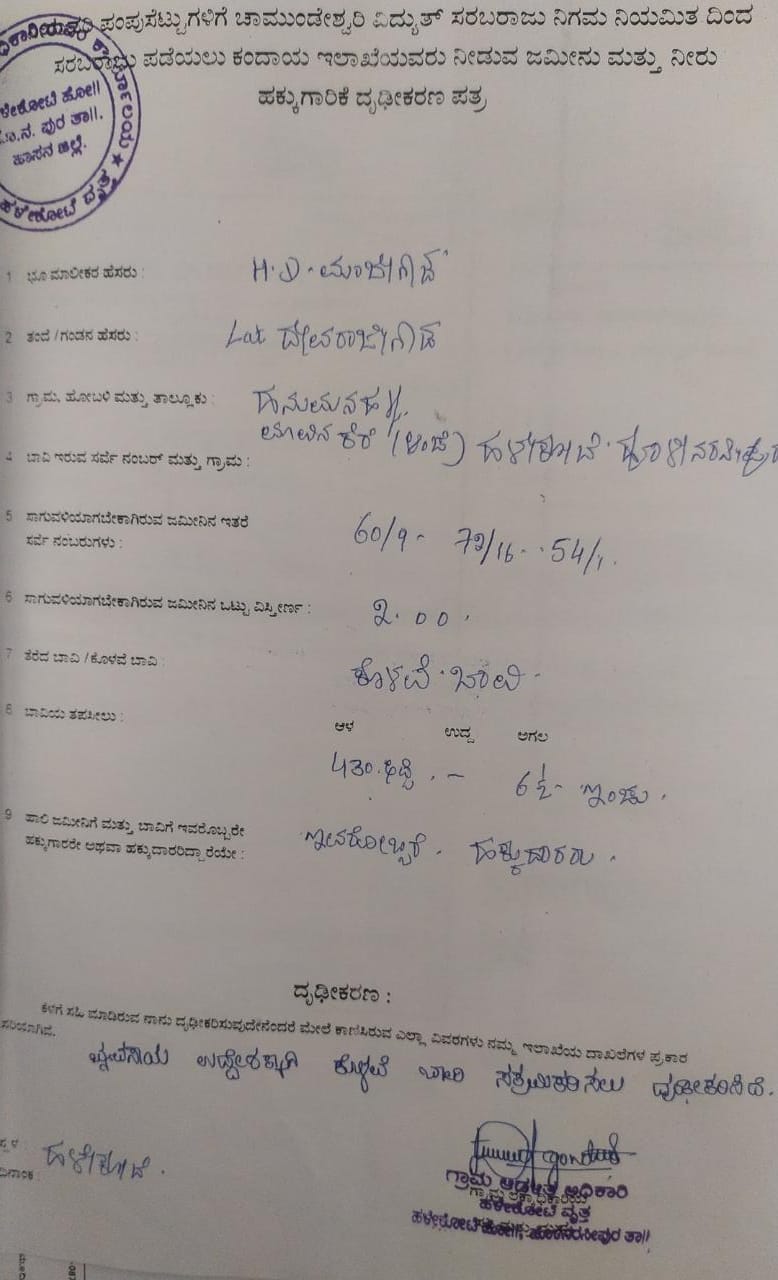 ಪಂಪುಸೆಟ್ಟುಗಳಿಗೆ ಚಾಮುಂಡೇಶ್ವರಿ ವಿದ್ಯುತ್ ಸರಬರಾಜು ನಿಗಮ ನಿಯಮಿತ ದಿಂದ
ಸರಬರಾಜು ಪಡೆಯಲು ಕಂದಾಯ ಇಲಾಖೆಯವರು ನೀಡುವ ಜಮೀನು ಮತ್ತು ನೀರು
ಹಕ್ಕುಗಾರಿಕೆ ದೃಢೀಕರಣ ಪತ್ರ
ಪುರ ತಾ||.
ಹಾಸನ ಜಿಲ್ಲೆ.
ಹಳೇಕೋಟೆ ವೃತ್ತ
1 ಭೂ ಮಾಲೀಕರ ಹೆಸರು : H.D.
2 ತಂದೆ/ಗಂಡನ ಹೆಸರು : Late ದೇವರಾಜೇಗೌಡ
3 ಗ್ರಾಮ, ಹೋಬಳಿ ಮತ್ತು ತಾಲ್ಲೂಕು : ಹನುಮನಹಳ್ಳಿ
4 ಬಾವಿ ಇರುವ ಸರ್ವೆ ನಂಬರ್ ಮತ್ತು ಗ್ರಾಮ : ಮಾವಿನಕೆರೆ (ಅಂಚೆ) ಹಳೇಕೋಟೆ
5 ಸಾಗುವಳಿಯಾಗಬೇಕಾಗಿರುವ ಜಮೀನಿನ ಇತರೆ
ಸರ್ವೆ ನಂಬರುಗಳು : 60/9 - 72/16 - 54/1.
6 ಸಾಗುವಳಿಯಾಗಬೇಕಾಗಿರುವ ಜಮೀನಿನ ಒಟ್ಟು ವಿಸ್ತೀರ್ಣ : 2.00.
7 ತೆರೆದ ಬಾವಿ/ಕೊಳವೆ ಬಾವಿ : ಕೊಳವೆ ಬಾವಿ -
8 ಬಾವಿಯ ತಪಸೀಲು : ಆಳ ಉದ್ದ ಅಗಲ
430.ಅಡಿ. - 6½ - ಇಂಚು.
9 ಹಾಲಿ ಜಮೀನಿಗೆ ಮತ್ತು ಬಾವಿಗೆ ಇವರೊಬ್ಬರೇ
ಹಕ್ಕುಗಾರರೇ ಅಥವಾ ಹಕ್ಕುದಾರರಿದ್ದಾರೆಯೇ : ಇವರೋಬ್ಬರೆ. ಹಕ್ಕುದಾರರು.
ದೃಢೀಕರಣ :
ಕೆಳಗೆ ಸಹಿ ಮಾಡಿರುವ ನಾನು ದೃಢೀಕರಿಸುವುದೇನೆಂದರೆ ಮೇಲೆ ಕಾಣಿಸಿರುವ ಎಲ್ಲಾ ವಿವರಗಳು ನಮ್ಮ ಇಲಾಖೆಯ ದಾಖಲೆಗಳ ಪ್ರಕಾರ
ಸರಿಯಾಗಿವೆ.
ವ್ಯವಸಾಯ ಉದ್ದೇಶಕ್ಕಾಗಿ ಕೊಳವೆ ಬಾವಿ ಸಕ್ರಮಿಕರಿಸಲು ದೃಢೀಕರಿಸಿದೆ.
ಹಳೇಕೋಟೆ.
ದಿನಾಂಕ :
ಗ್ರಾಮ ಆಡಳಿತ ಅಧಿಕಾರಿ
ಹಳೇಕೋಟೆ ವೃತ್ತ
ಹಳೇಕೋಟೆ ಹೋ||, ಹೊಳೆನರಸೀಪುರ ತಾ||